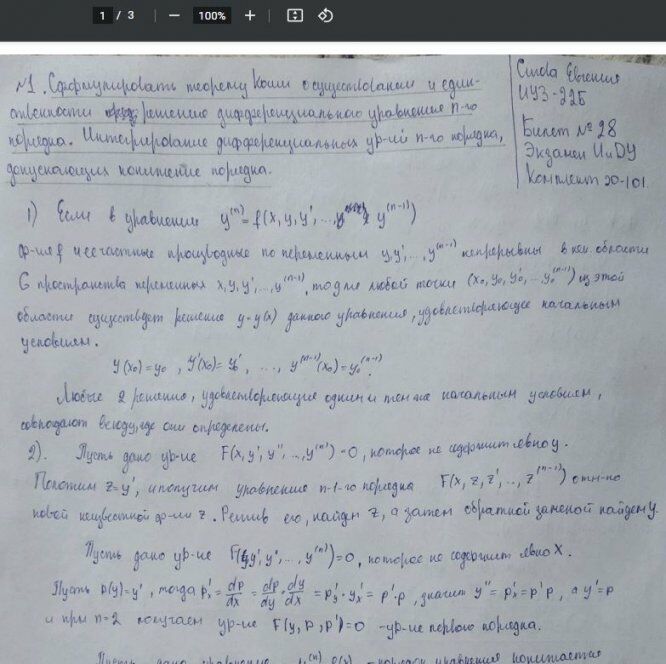 1 / 3 — 100% +
№1. Сформулировать теорему Коши о существовании и един-
ственности решению дифференциального уравнения n-го
порядка. Интегрирование дифференциальных ур-ий n-го порядка,
допускающих понижение порядка.
Синда Евгения
ИУЗ-22Б
Билет №28
Экзамен ИиДУ
Комплект 20-101.
1) Если в уравнении y⁽ⁿ⁾ = f(x, y, y', ..., y⁽ⁿ⁻¹⁾)
ф-ия f и ее частные производные по переменным y, y', ..., y⁽ⁿ⁻¹⁾ непрерывны в нек. области
G пространства переменных x, y, y', ..., y⁽ⁿ⁻¹⁾, то для любой точки (x₀, y₀, y₀', ... y₀⁽ⁿ⁻¹⁾) из этой
области существует решение y=y(x) данного уравнения, удовлетворяющее начальным
условиям.
y(x₀)=y₀, y'(x₀)=y₀', ..., y⁽ⁿ⁻¹⁾(x₀)=y₀⁽ⁿ⁻¹⁾.
Любые 2 решения, удовлетворяющие одним и тем же начальным условиям,
совпадают всюду, где они определены.
2). Пусть дано ур-ие F(x, y', y'', ..., y⁽ⁿ⁾)=0, которое не содержит явно y.
Положим z=y', и получим уравнение n-1-го порядка F(x, z, z', ..., z⁽ⁿ⁻¹⁾) отн-но
новой неизвестной ф-ии z. Решив его, найдем z, а затем обратной заменой найдем y.
Пусть дано ур-ие F(y, y', y'', ..., y⁽ⁿ⁾)=0, которое не содержит явно x.
Пусть p(y)=y', тогда p'ₓ = dp/dx = dp/dy · dy/dx = p'y · y'ₓ = p'·p, значит y''=p'ₓ=p'p, а y'=p
и при n=2 получаем ур-ие F(y, p, p')=0 -ур-ие первого порядка.
Пусть дано уравнение y⁽ⁿ⁾ f(x) - порядок уравнения понижается